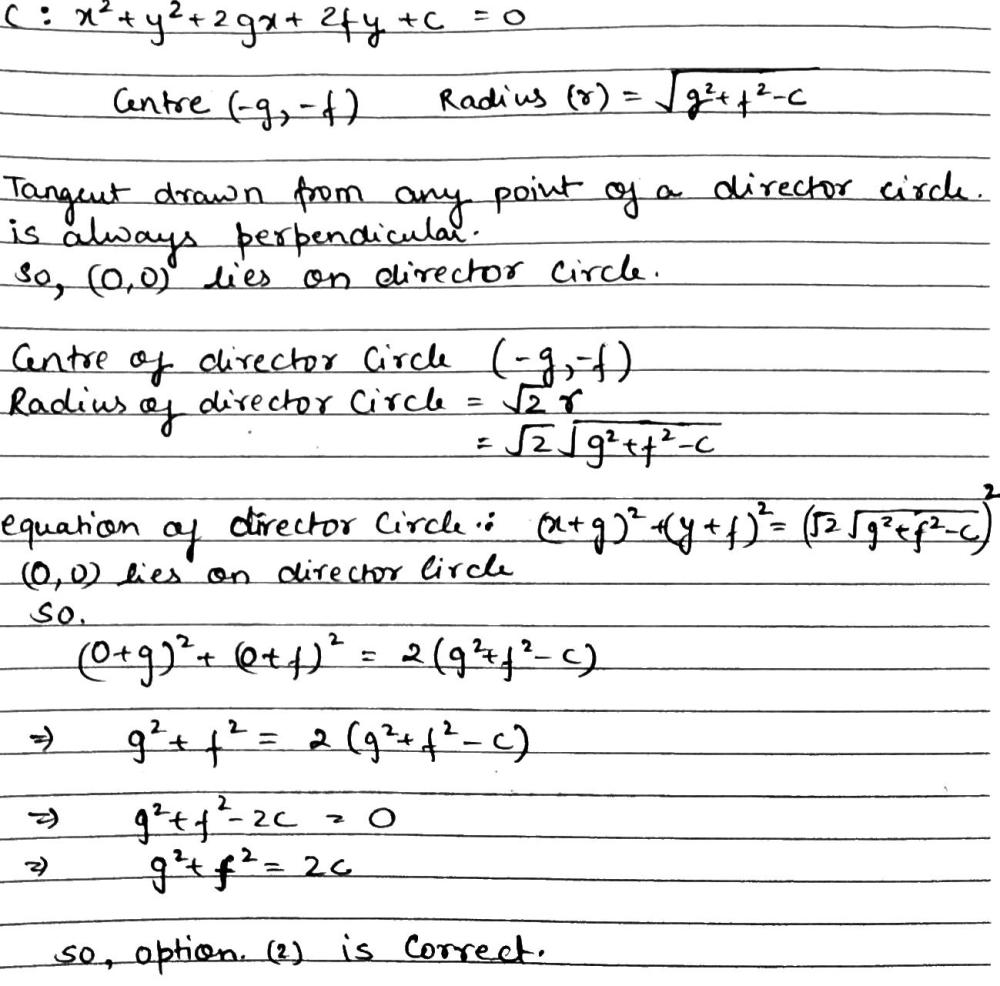 C : x² + y² + 2gx + 2fy + c = 0
Centre (-g, -f) Radius (r) = √(g² + f² - c)
Tangent drawn from any point of a director circle.
is always perpendicular.
so, (0,0) lies on director circle.
Centre of director Circle (-g, -f)
Radius of director Circle = √2 r
= √2 √(g² + f² - c)
equation of director Circle :: (x+g)² + (y+f)² = (√2 √(g² + f² - c))²
(0,0) lies on director Circle
so.
(0+g)² + (0+f)² = 2(g² + f² - c)
⇒ g² + f² = 2(g² + f² - c)
⇒ g² + f² - 2c = 0
⇒ g² + f² = 2c
so, option. (2) is Correct.